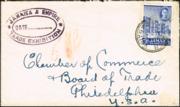 JAMAICA & EMPIRE
DATE
TRADE EXHIBITION
Chamber of Commerce
& Board of Trade
Philadelphia
U.S.A.